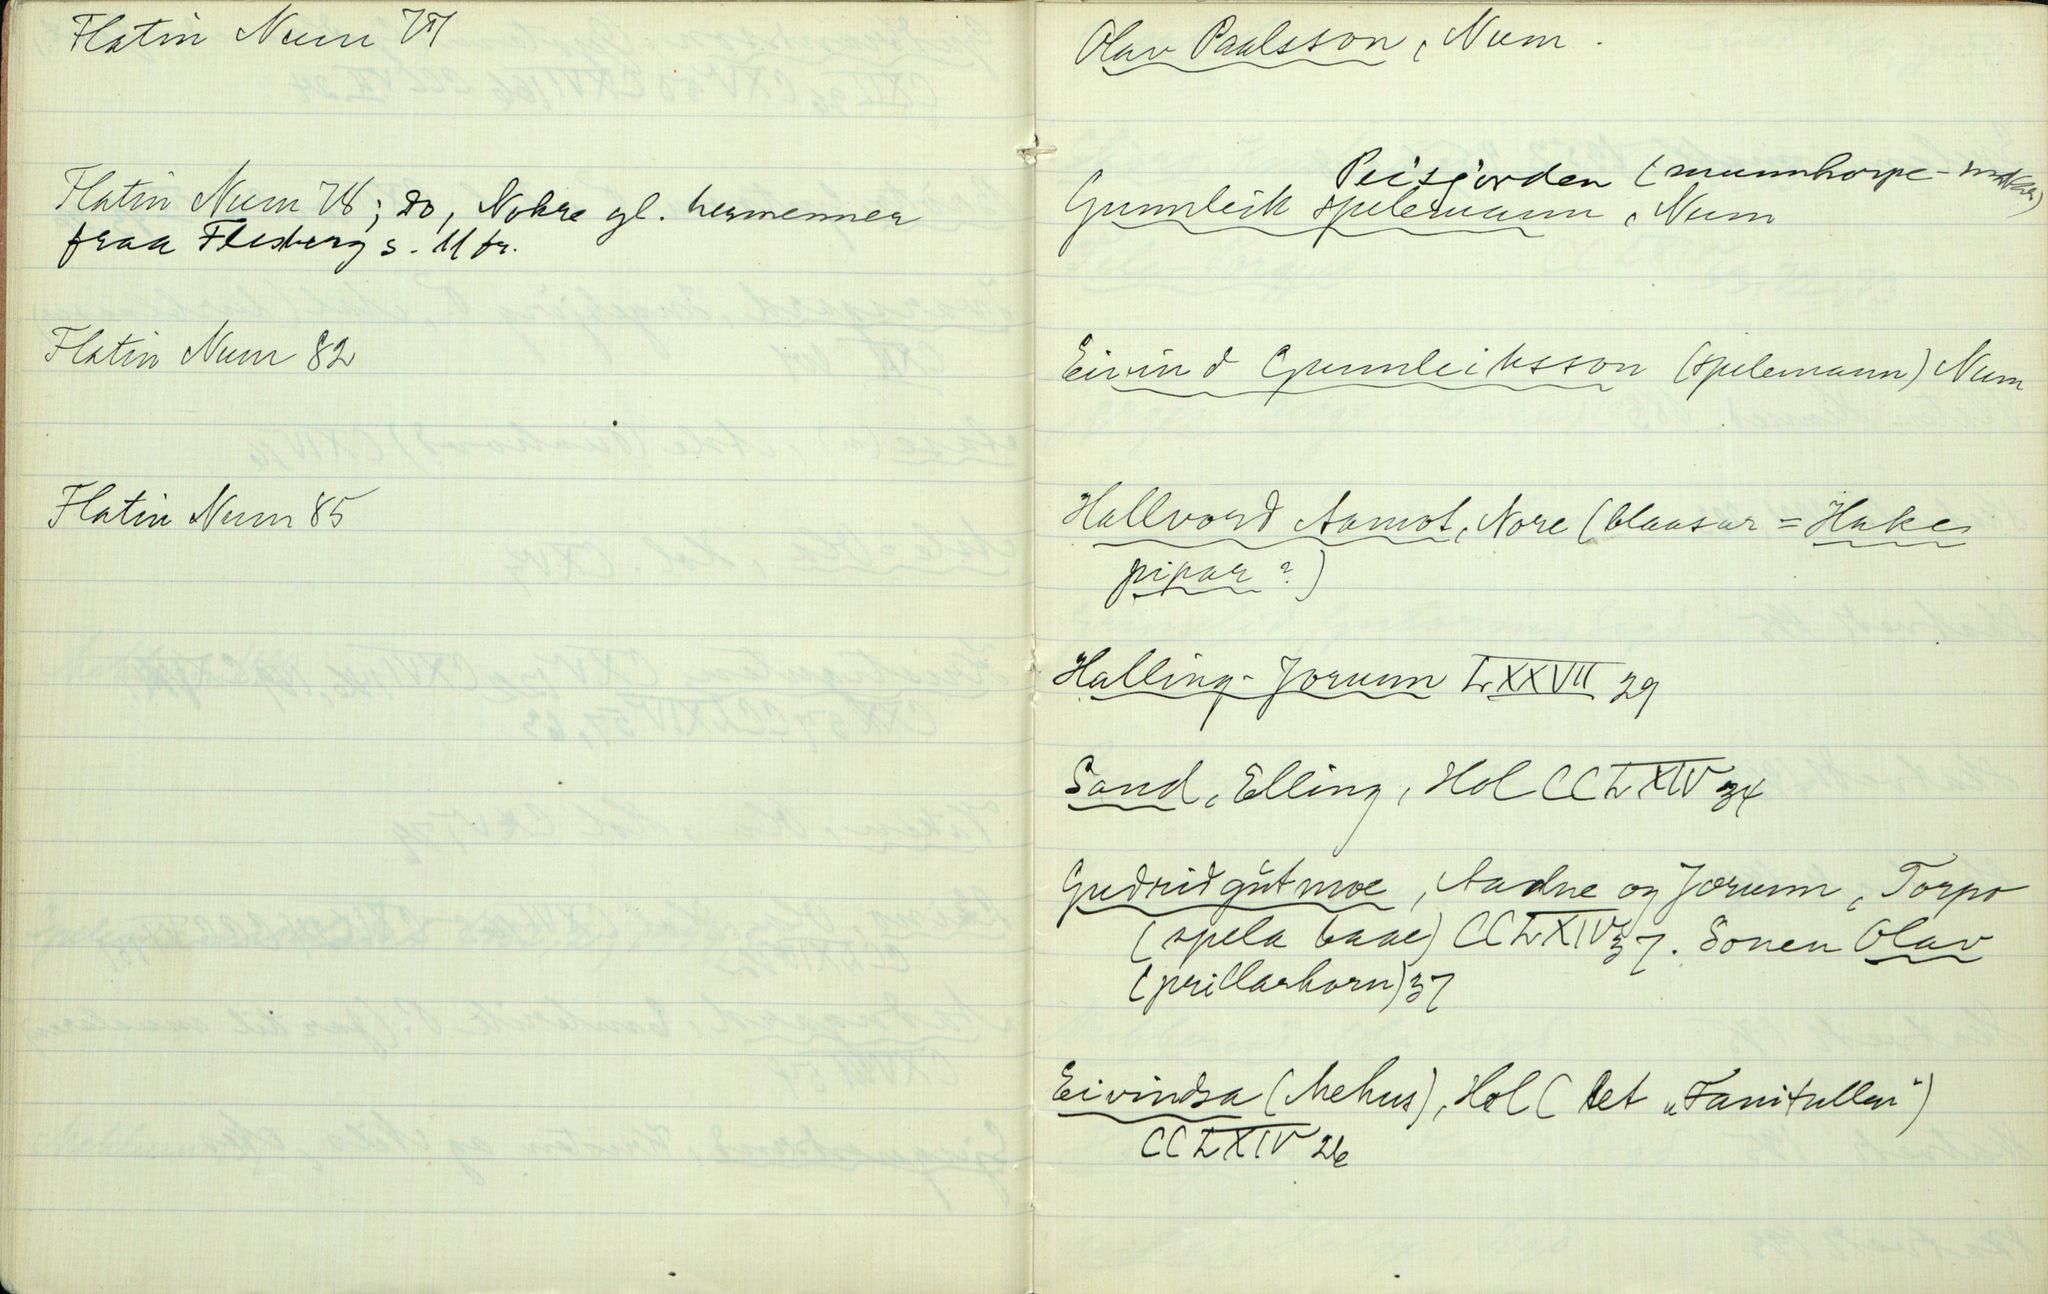 Flatin Num 77
Flatin Num 78; do, Nokre gl. hermenner
fraa Flesberg s. 11 fr.
Flatin Num 82
Flatin Num 85
Olav Paalsson, Num.
Peisjorden (munnhorpe-
Gunnleik spelemann, Num
Eivind Gunnleiksson (spelemann) Num
Hallvord Aamot, Nore (blaasar = Hake
pipar?)
Halling-Jorunn LXXVII 29
Sand, Elling, Hol CCLXIV 34
Gudridgutmoe, Aadne og Jorunn, Torpo
(spela baae) CCLXIV 37. Sonen Olav
(prillarhorn) 37
Eivindsa (Mehus), Hol (let „Fanitullen")
CCLXIV 26